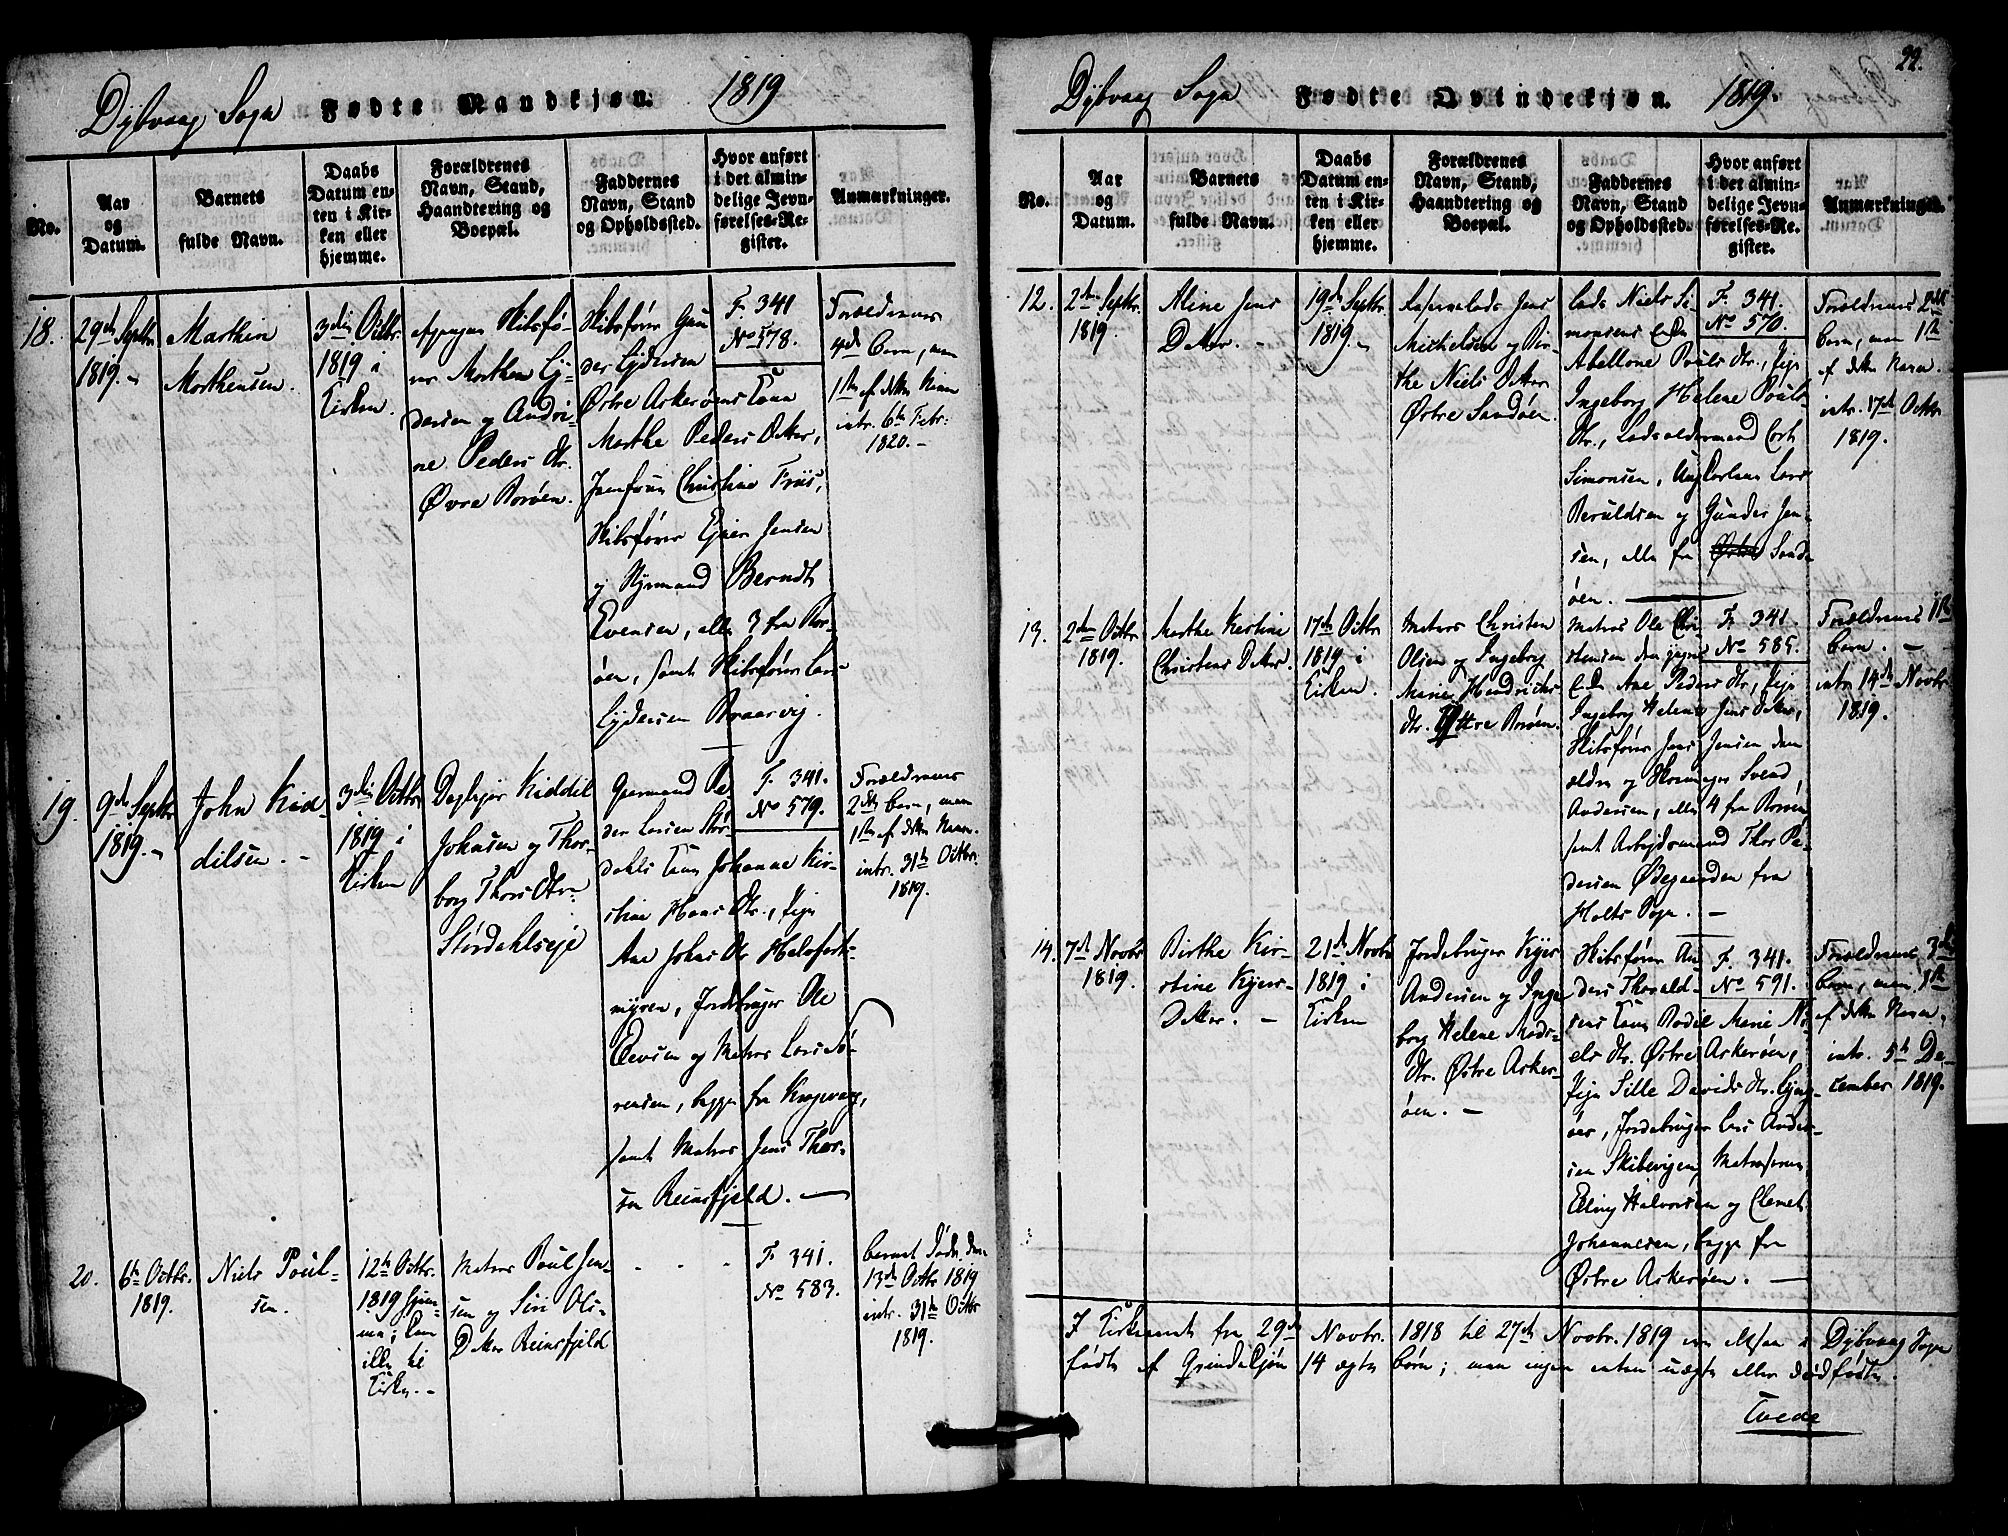 Dybvaag Sogn Fødte Mandkjøn. 1819
No.
Aar
og
Datum.
Barnets
fulde Navn.
Daabs
Datum en-
ten i Kir-
ken eller
hjemme.
Forældrenes
Navn, Stand,
Haandtering og
Boepæl.
Faddernes
Navn, Stand
og Opholdssted.
Hvor anført
i det almin-
delige Jevn-
førelses-Re-
gister.
Anmærkninger.
18.
29de Septbr
1819.
Marthin
Morthensen.
3die Octbr
1819 i
Kirken.
Morthen Ly-
dersen og Andri-
ne Peders Dtr.
Øvre Borøen.
Skibsfører Gun-
der Lydersen
Østre Askerøens Kone
Marthe Peders Datter,
Jomfrue Christine Friis,
Skibsfører Ejner Jensen
og Styrmand Berndt
Evensen, alle 3 fra Bor-
øen, samt Skibsfører Lars
Lydersen Braarvig.
F. 341
No 578.
Forældrenes
4de Barn, men
1ste af dette Kiøn
intr. 6te Febr.
1820.
19.
9de Septbr
1819.
John Kid-
dilsen.
3die Octbr
1819 i
Kirken
Kiddil
Johnsen og Thor-
borg Thors Dtr
Størdahlseje
Gaarmand Pe-
der Larsen Stør-
dahls Kone Johanne Kir-
stine Hans Dtr., Pige
Ane Johns Dtr
myren, Jordebruger Ole
Evensen og Matros Lars Sø-
rensen, begge fra Krogvaag,
samt Matros Jens Thor-
sen Reinsfjeld.
F. 341.
No 579.
Forældrenes
2det Barn, men
1ste af dette Navn.
intr. 31te Octbr.
1819.
20.
6te Octbr.
1819.
Niels Poul-
sen.
12te Octbr.
1819 hjem-
me;
Matros Poul Jen-
sen og Siri Ols-
Datter Reinsfjeld
F. 341.
No 583.
Barnet døde den
13de Octbr 1819
intr. 31te Octbr
1819.
22.
Dybvaag Sogn Fødte Qvindekjøn. 1819.
No.
Aar
og
Datum.
Barnets
fulde Navn.
Daabs
Datum en-
ten i Kir-
ken eller
hjemme.
Forældrenes
Navn, Stand,
Haandtering og
Boepæl.
Faddernes
Navn, Stand
og Opholdssted.
Hvor anført
i det almin-
delige Jevn-
førelses-Re-
gister.
Anmærkninger.
12.
2den Septbr.
1819.
Aline Jens
Datter.
19de Septbr.
1819.
Jens
Michelsen og Bir-
the Niels Datter
Østre Sandøen.
Lods Niels Si-
monsens Kone
Abellone Pouls Dtr., Pige
Ingeborg Helene Pouls
Dtr., Lodsoldermand Cort
Simonsen, Ungkarlene Lars
Beruldsen og Gunder Jen-
sen, alle fra Østre Sand-
øen.
F. 341.
No 570.
Forældrenes 2det
Barn, men 1ste
af dette Navn.
intr. 17de Octbr
1819.
13.
2den Octbr
1819.
Marthe Kirstine
Christens Datter.
17de Octbr
1819 i
Kirken.
Matros Christen
Olsen og Ingeborg
Marie Hendrichs
Dtr. Østre Borøen.
Matros Ole Chri-
stensen den yngres
Kone Ane Peders Dtr., Pige
Ingeborg Helene Jens Datter,
Skibsfører Jens Jensen den
ældre og Skomager Svend
Andersen, alle 4 fra Borøen,
samt Arbejdsmand Thor Pe-
dersen Ødegaarden fra
Holts Sogn.
F. 341.
No 585.
Forældrenes 1ste
Barn.
intr. 14de Novbr
1819.
14.
7de Novbr
1819.
Birthe Kir-
stine Kjers-
Datter.
21de Novbr
1819 i
Kirken
Jordebruger Kjer
Andersen og Inge-
borg Helene Mads-
Dtr. Østre Asker-
øen.
Skibsfører An-
ders Thorvald-
sens Kone Bodil Marie Ni-
els Dtr. Østre Askerøen,
Pige Sille Davids Dtr. Lyng-
øer, Jordebruger Lars Ander-
sen Skibevigen, Matroserne
Elling Halvorsen og Clemet
Johannesen, begge fra
Østre Askerøen.
F. 341.
No 591.
Forældrenes 3die
Barn, men 1ste
af dette Navn,
intr. 5te De-
cember 1819.
I Kirkeaaret fra 29de Novbr. 1818 til 27de Novbr. 1819 er altsaa i Dybvaag Sogn
fødte af Qvindekjøn 14 ægte Børn; men ingen enten uægte eller dødfødte.
Tuede